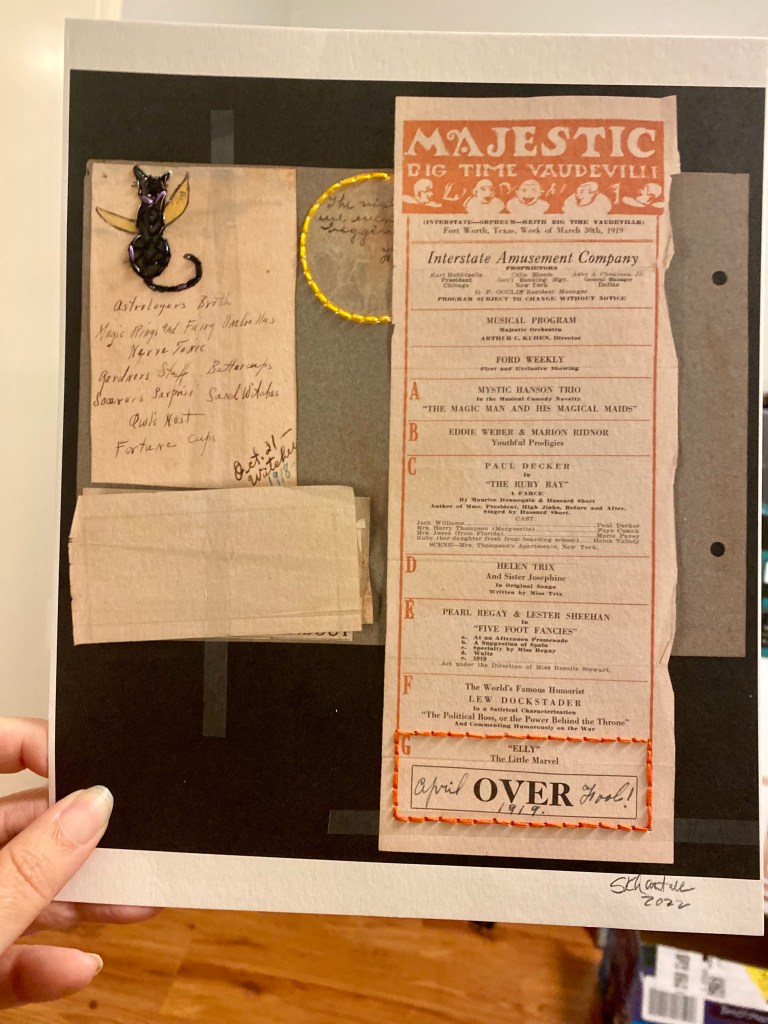 Astrologers Broth
Magic Rings and Fairy Umbrellas
Nerve Tonic
Gardners Staff Buttercups
Sorcerors Surprise Sand Witches
Owl's Nest
Fortune Cups
Oct. 31 –
Witches
1918
The
we were
MAJESTIC
BIG TIME VAUDEVILLE
(INTERSTATE—ORPHEUM—KEITH BIG TIME VAUDEVILLE)
Fort Worth, Texas, Week of March 30th, 1919
Interstate Amusement Company
PROPRIETORS
Karl Hoblitzelle Celia Bloom
President Gen'l Booking Mgr. General Manager
Chicago New York Dallas
Resident Manager
PROGRAM SUBJECT TO CHANGE WITHOUT NOTICE
MUSICAL PROGRAM
Majestic Orchestra
ARTHUR C. KUHEN, Director
FORD WEEKLY
First and Exclusive Showing
A MYSTIC HANSON TRIO
In the Musical Comedy Novelty
"THE MAGIC MAN AND HIS MAGICAL MAIDS"
B EDDIE WEBER & MARION RIDNOR
Youthful Prodigies
C PAUL DECKER
In
"THE RUBY RAY"
A FARCE
By Maurice Hennequin & Hassard Short
Author of Mme. President, High Jinks, Before and After.
Staged by Hassard Short.
CAST:
Jack Williams Paul Decker
Mrs. Harry Thompson (Marguerite)
Mrs. Jones (from Florida)
Ruby (her daughter fresh from boarding school) Helen
SCENE—Mrs. Thompson's Apartments, New York.
D HELEN TRIX
And Sister Josephine
In Original Songs
Written by Miss Trix
E PEARL REGAY & LESTER SHEEHAN
In
"FIVE FOOT FANCIES"
a. At an Afternoon Promenade
b. A Suggestion of Spain
c. Specialty by Miss Regay
d. Waltz
e. 1919
Act under the Direction of Miss Rosalie Stewart.
F The World's Famous Humorist
LEW DOCKSTADER
In a Satirical Characterization
"The Political Boss, or the Power Behind the Throne"
And Commenting Humorously on the War
G "ELLY"
The Little Marvel
April OVER Fool!
1919.
2022